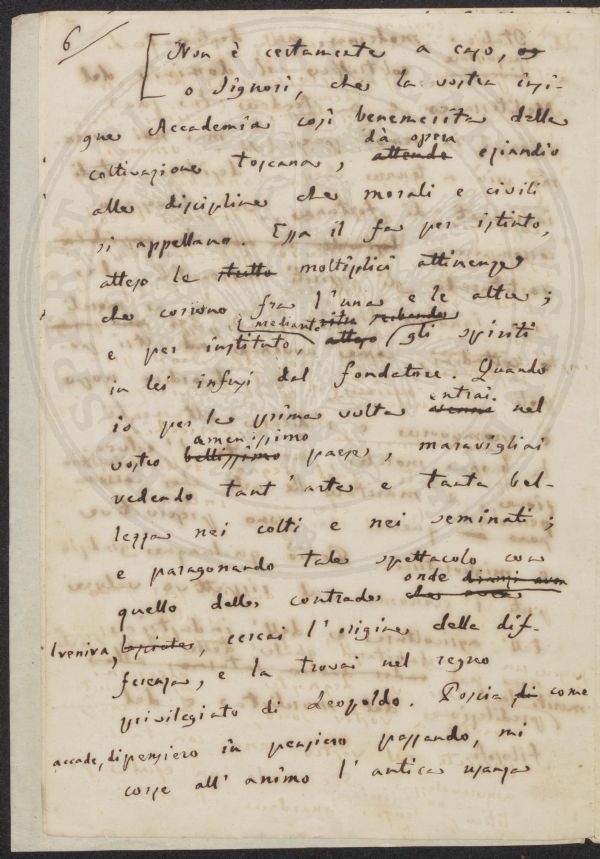 6
Non è certamente a caso,
o Signori, che la vostra insi-
gne Accademia così benemerita della
dà opera
coltivazione toscana, attende eziandio
alle discipline che morali e civili
si appellano. Essa il fa per istinto,
atteso le molteplici attinenze
che corrono fra l'una e le altre;
mediante serbando
e per instituto, atteso gli spiriti
in lei infusi dal fondatore. Quando
entrai
io per la prima volta venni nel
amenissimo
vostro bellissimo paese, maravigliai
vedendo tant'arte e tanta bel-
lezza nei colti e nei seminati;
e paragonando tale spettacolo con
onde dianzi aveva
quello delle contrade che
Iveniva, lasciate, cercai l'origine della dif-
ferenza, e la trovai nel regno
privilegiato di Leopoldo. Poscia di come
accade, di pensiero in pensiero passando, mi
corse all'animo l'antica usanza